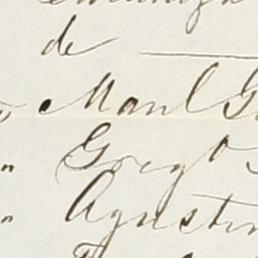 de
" Manl G
" Grego
" Agustin